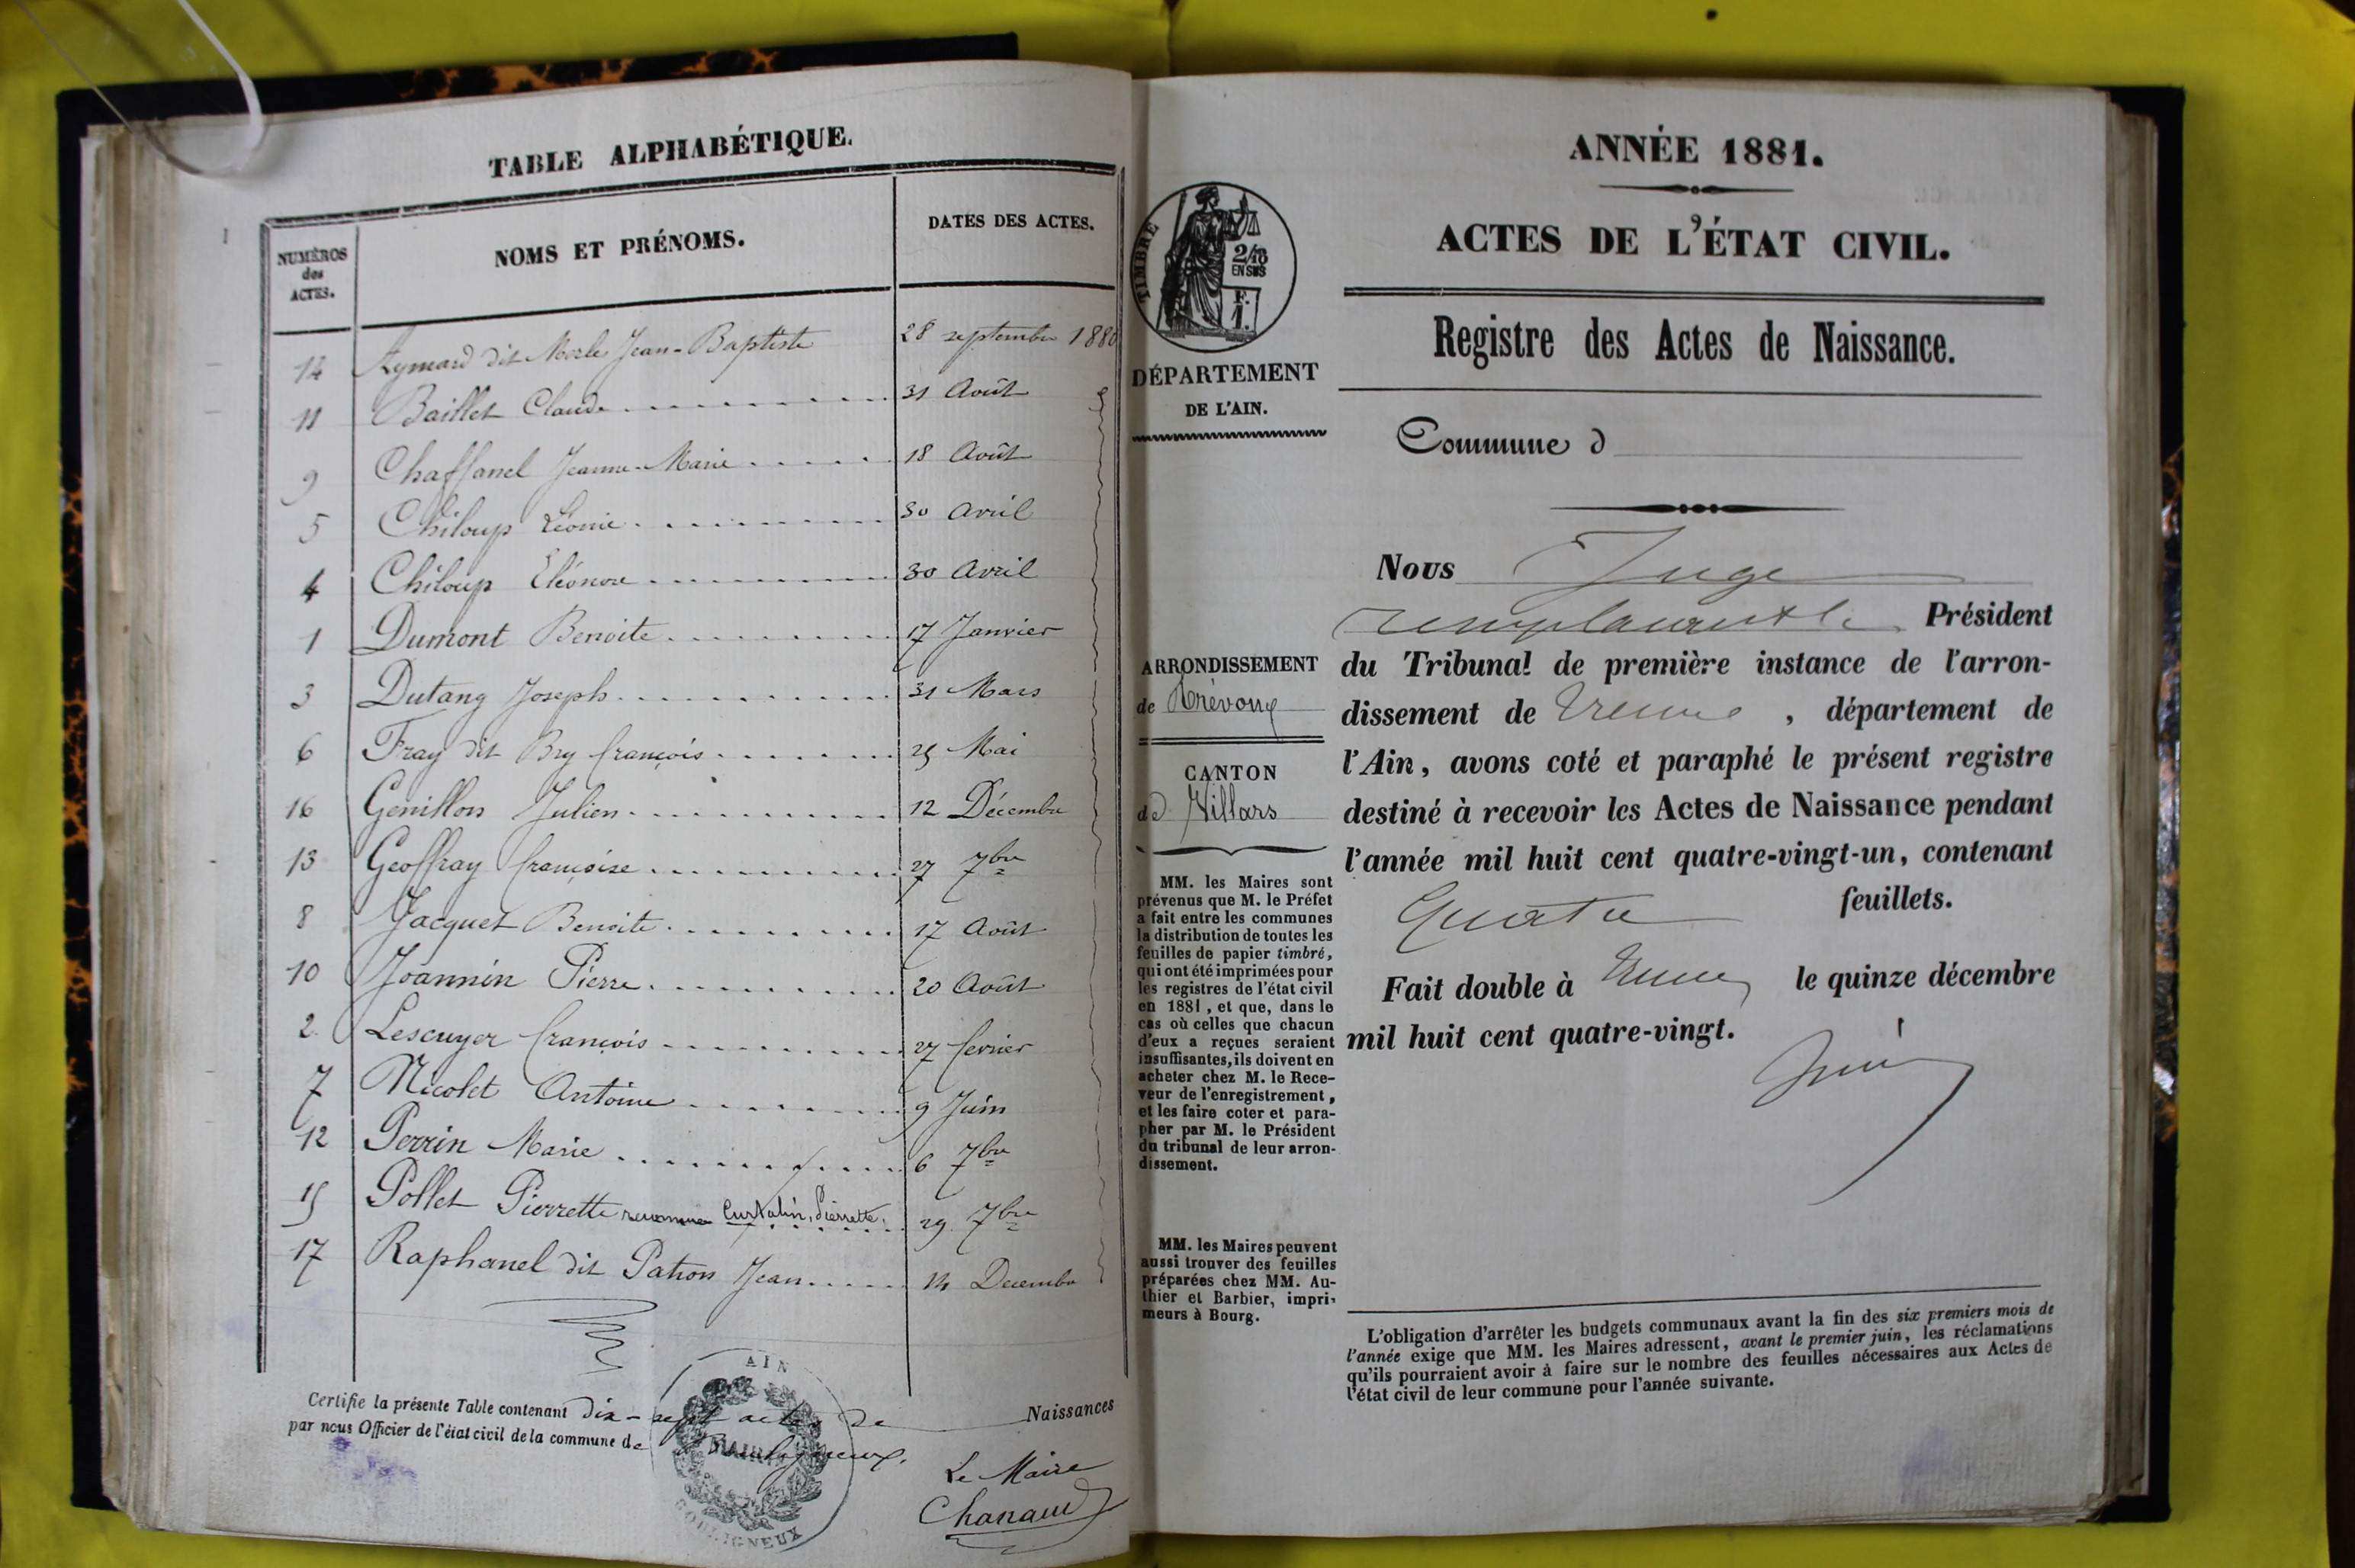 TABLE ALPHABÉTIQUE.
NUMÉROS des ACTES.
NOMS ET PRÉNOMS.
DATES DES ACTES.
14 Aymard dit Merle Jean-Baptiste 28 septembre 1880
11 Baillet Claude 31 Août
9 Chaffanel Jeanne-Marie 18 Août
5 Chiloup Léonie 30 avril
4 Chiloup Eléonore 30 Avril
1 Dumont Benoite 17 Janvier
3 Dutang Joseph 31 Mars
6 Fray dit Bry françois 25 Mai
16 Genillon Julien 12 Décembre
13 Geoffray françoise 27 7bre
8 Jacquet Benoite 17 Août
10 Joannin Pierre 20 Août
2 Lescuyer françois 27 fevrier
7 Nicolet Antoine 9 Juin
12 Perrin Marie 6 7bre
15 Pollet Pierrette reconnue Curtalin, Pierrette, 29 7bre
17 Raphanel dit Patron Jean 14 Decembre
Certifie la présente Table contenant dix-sept actes de Naissances
par nous Officier de l'état civil de la commune de Bouligneux.
AIN
MAIRIE
BOULIGNEUX
Le Maire
Chanaud
ANNÉE 1881.
ACTES DE L'ÉTAT CIVIL.
Registre des Actes de Naissance.
Commune d
TIMBRE
2/10
EN SUS
F.
1.
DÉPARTEMENT
DE L'AIN.
ARRONDISSEMENT
de Trévoux
CANTON
de Villars
MM. les Maires sont
prévenus que M. le Préfet
a fait entre les communes
la distribution de toutes les
feuilles de papier timbré,
qui ont été imprimées pour
les registres de l'état civil
en 1881, et que, dans le
cas où celles que chacun
d'eux a reçues seraient
insuffisantes, ils doivent en
acheter chez M. le Rece-
veur de l'enregistrement,
et les faire coter et para-
pher par M. le Président
du tribunal de leur arron-
dissement.
MM. les Maires peuvent
aussi trouver des feuilles
préparées chez MM. Au-
thier et Barbier, impri-
meurs à Bourg.
Nous Juge
remplaçant le Président
du Tribunal de première instance de l'arron-
dissement de Trévoux, département de
l'Ain, avons coté et paraphé le présent registre
destiné à recevoir les Actes de Naissance pendant
l'année mil huit cent quatre-vingt-un, contenant
Quatre feuillets.
Fait double à Trévoux le quinze décembre
mil huit cent quatre-vingt.
L'obligation d'arrêter les budgets communaux avant la fin des six premiers mois de
l'année exige que MM. les Maires adressent, avant le premier juin, les réclamations
qu'ils pourraient avoir à faire sur le nombre des feuilles nécessaires aux Actes de
l'état civil de leur commune pour l'année suivante.